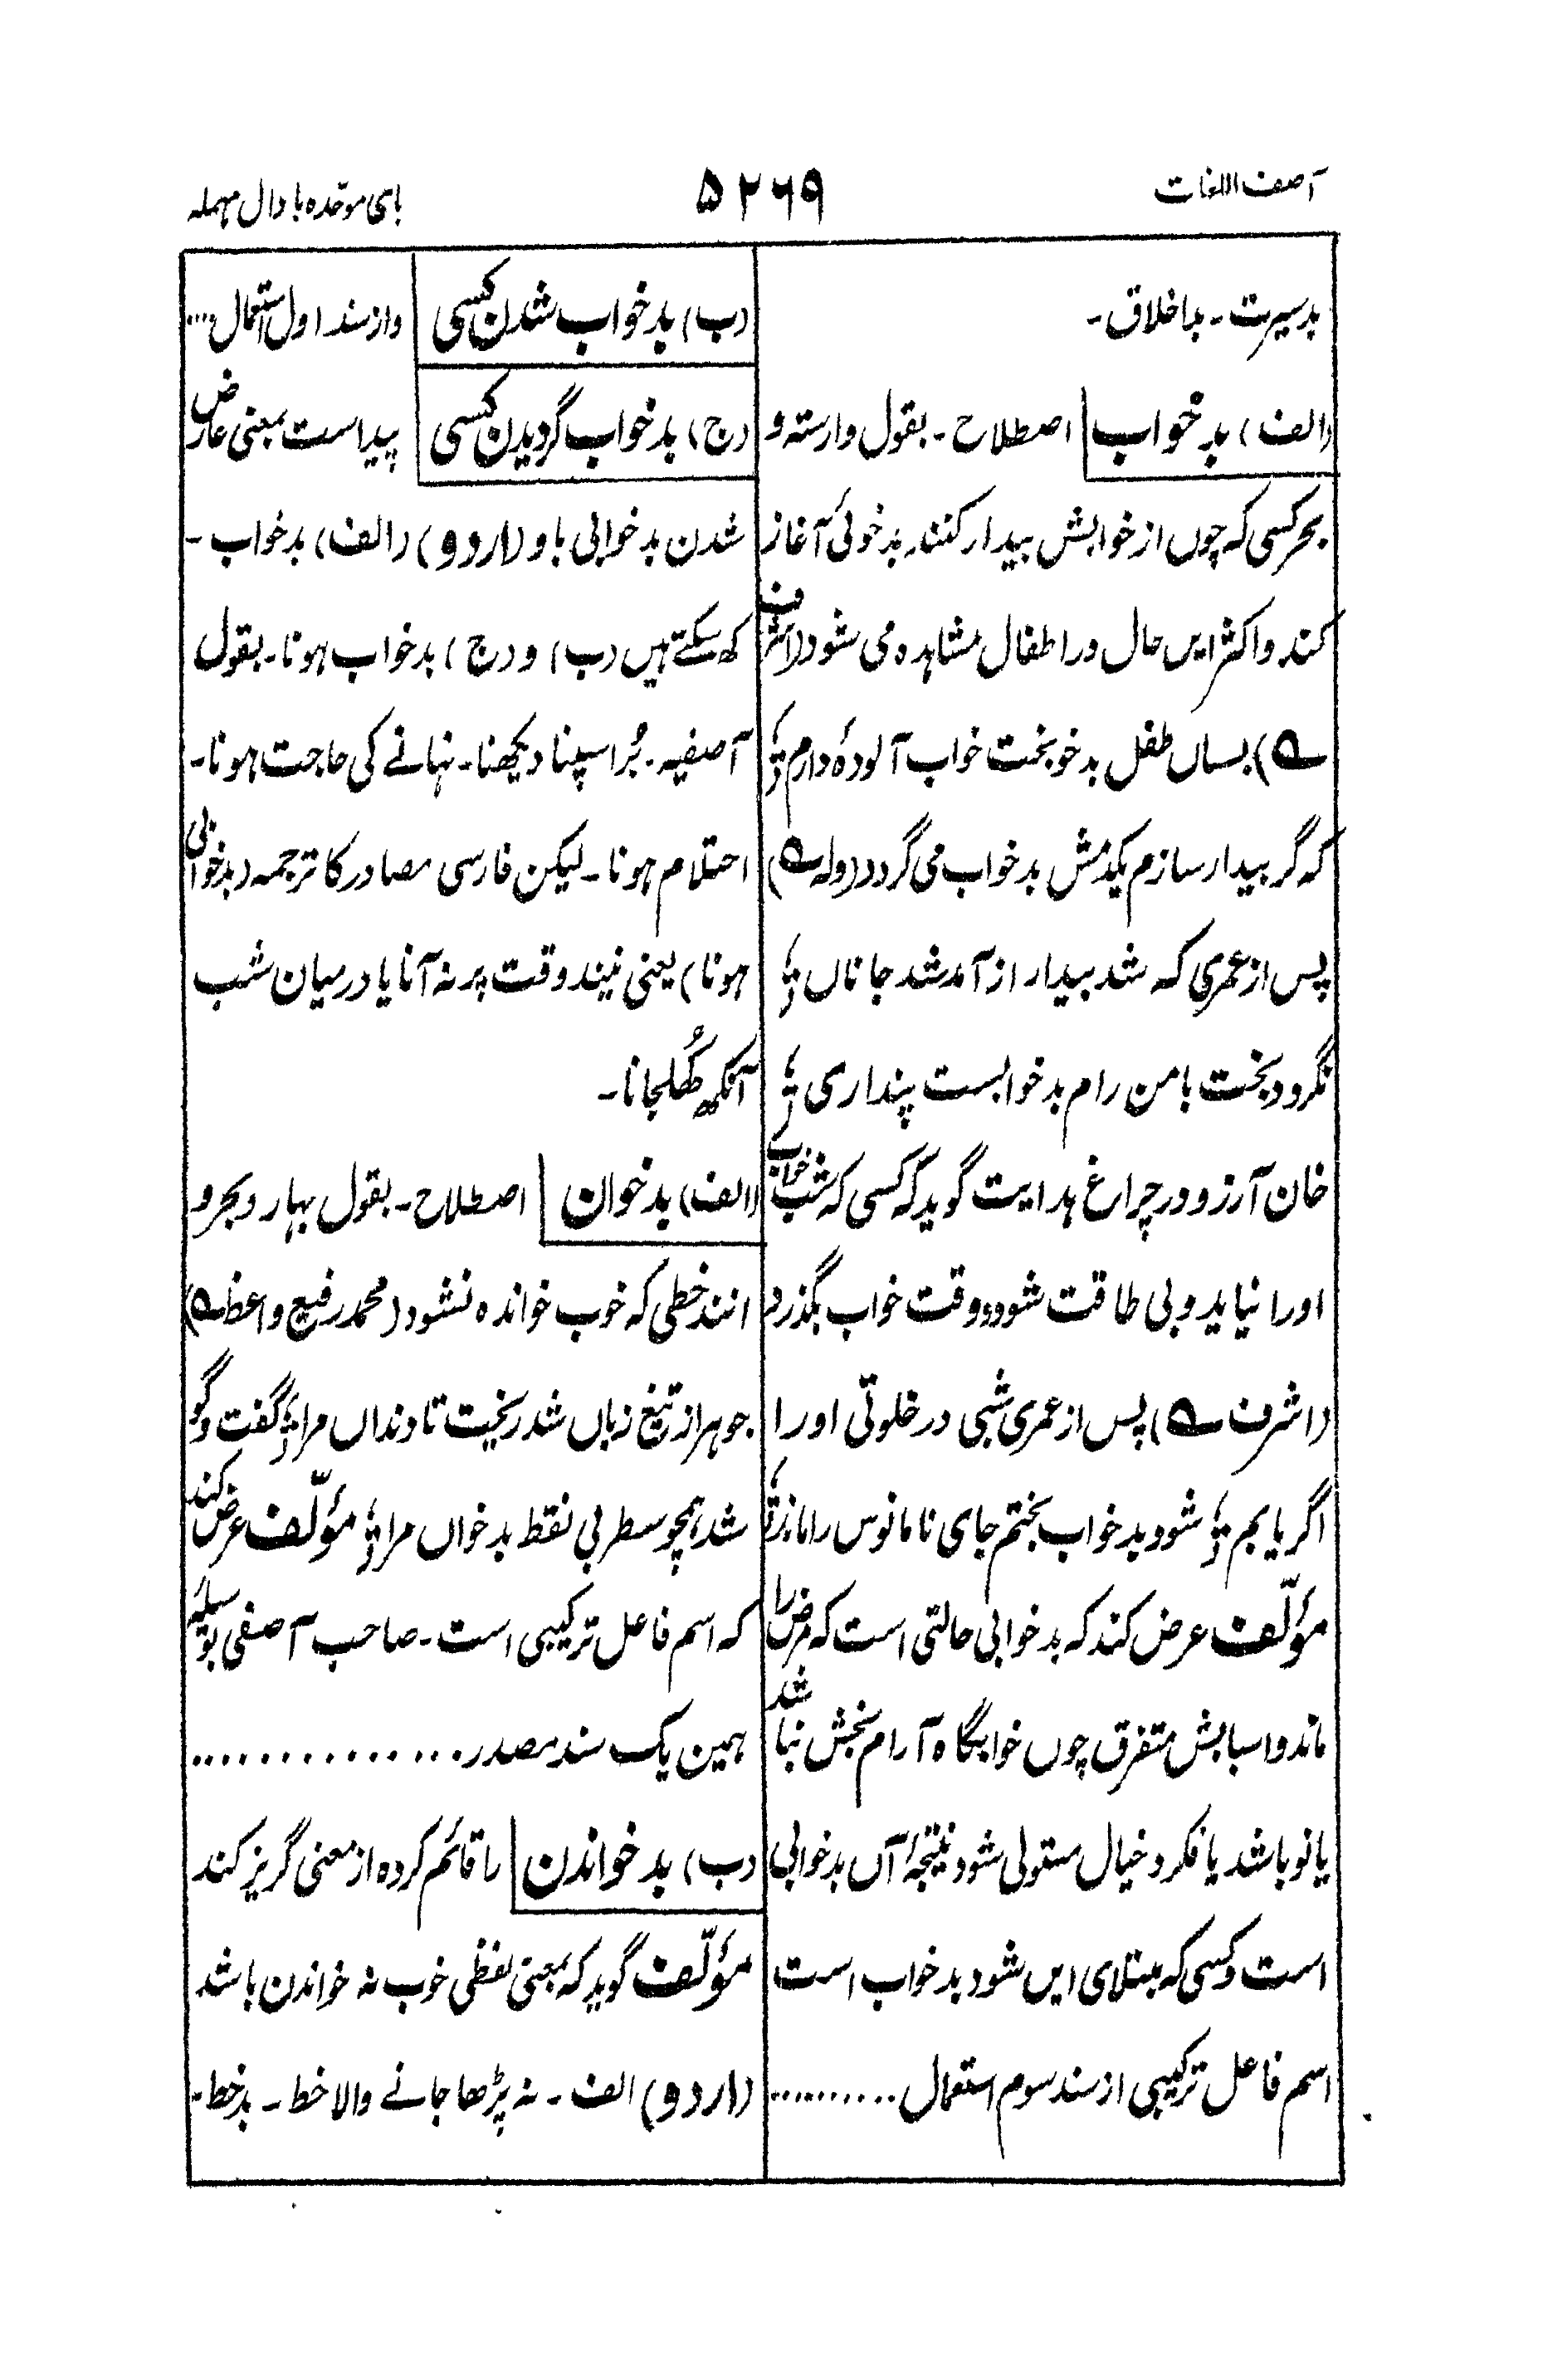 آصف اللغات
۵۲۶۹
بای موحّدہ با دال مہملہ
بدسیرت ۔ بداخلاق ۔
(الف) بدخواب اصطلاح ۔ بقول وارستہ و
بحر کسی کہ چوں از خوابش بیدار کنند بدخوئی آغاز
کند و اکثر ایں حال در اطفال مشاہدہ می شود (اشرف
ے) بساں طفل بدخو بخت خواب آلودۂ دارم ؛
کہ گر بیدار سازم یکدمش بدخواب می گردد (ولہ ے)
پس از عمری کہ شد بیدار از آمد شد جاناں ؛
نگردد بخت با من رام بدخوابست پنداری ؛
خان آرزو در چراغ ہدایت گوید کہ کسی کہ شب خواب
اورا نیاید و بی طاقت شود و وقت خواب بگذرد
(اشرف ے) پس از عمری شبی در خلوتی اورا
اگر یابم ؛ شود بدخواب بختم جای نامانوس را ماند ؛
مؤلّف عرض کند کہ بدخوابی حالتی است کہ مرض را
ماند و اسبابش متفرق چوں خوابگاہ آرام بخش نباشد
یا نو باشد یا فکر و خیال مستولی شود نتیجۂ آں بدخوابی
است و کسی کہ مبتلای ایں شود بدخواب است
اسم فاعل ترکیبی از سند سوم استعمال ..........
(ب) بدخواب شدن کسی و از سند اول استعمال ...
(ج) بدخواب گردیدن کسی پیداست بمعنی عارض
شدن بدخوابی باو (اردو) (الف) بدخواب ۔
کہ سکتے ہیں (ب) و (ج) بدخواب ہونا ۔ بقول
آصفیہ ۔ بُرا سپنا دیکھنا ۔ نہانے کی حاجت ہونا ۔
احتلام ہونا ۔ لیکن فارسی مصادر کا ترجمہ (بدخوابی
ہونا) یعنی نیند وقت پر نہ آنا یا درمیان شب
آنکھ کُھلجانا ۔
(الف) بدخوان اصطلاح ۔ بقول بہار و بحر و
انند خطی کہ خوب خواندہ نشود (محمد رفیع واعظ ے)
جوہر از تیغ زباں شد ریخت تا دنداں مرا ؛ گفت و گو
شد ہمچو سطر بی نقط بدخواں مرا ؛ مؤلّف عرض کند
کہ اسم فاعل ترکیبی است ۔ صاحب آصفی بوسیلۂ
ہمین یک سند مصدر ..............
(ب) بدخواندن را قائم کردہ از معنی گریز کند
مؤلّف گوید کہ بمعنی لفظی خوب نہ خواندن باشد
(اردو) الف ۔ نہ پڑھا جانے والا خط ۔ بدخط ۔